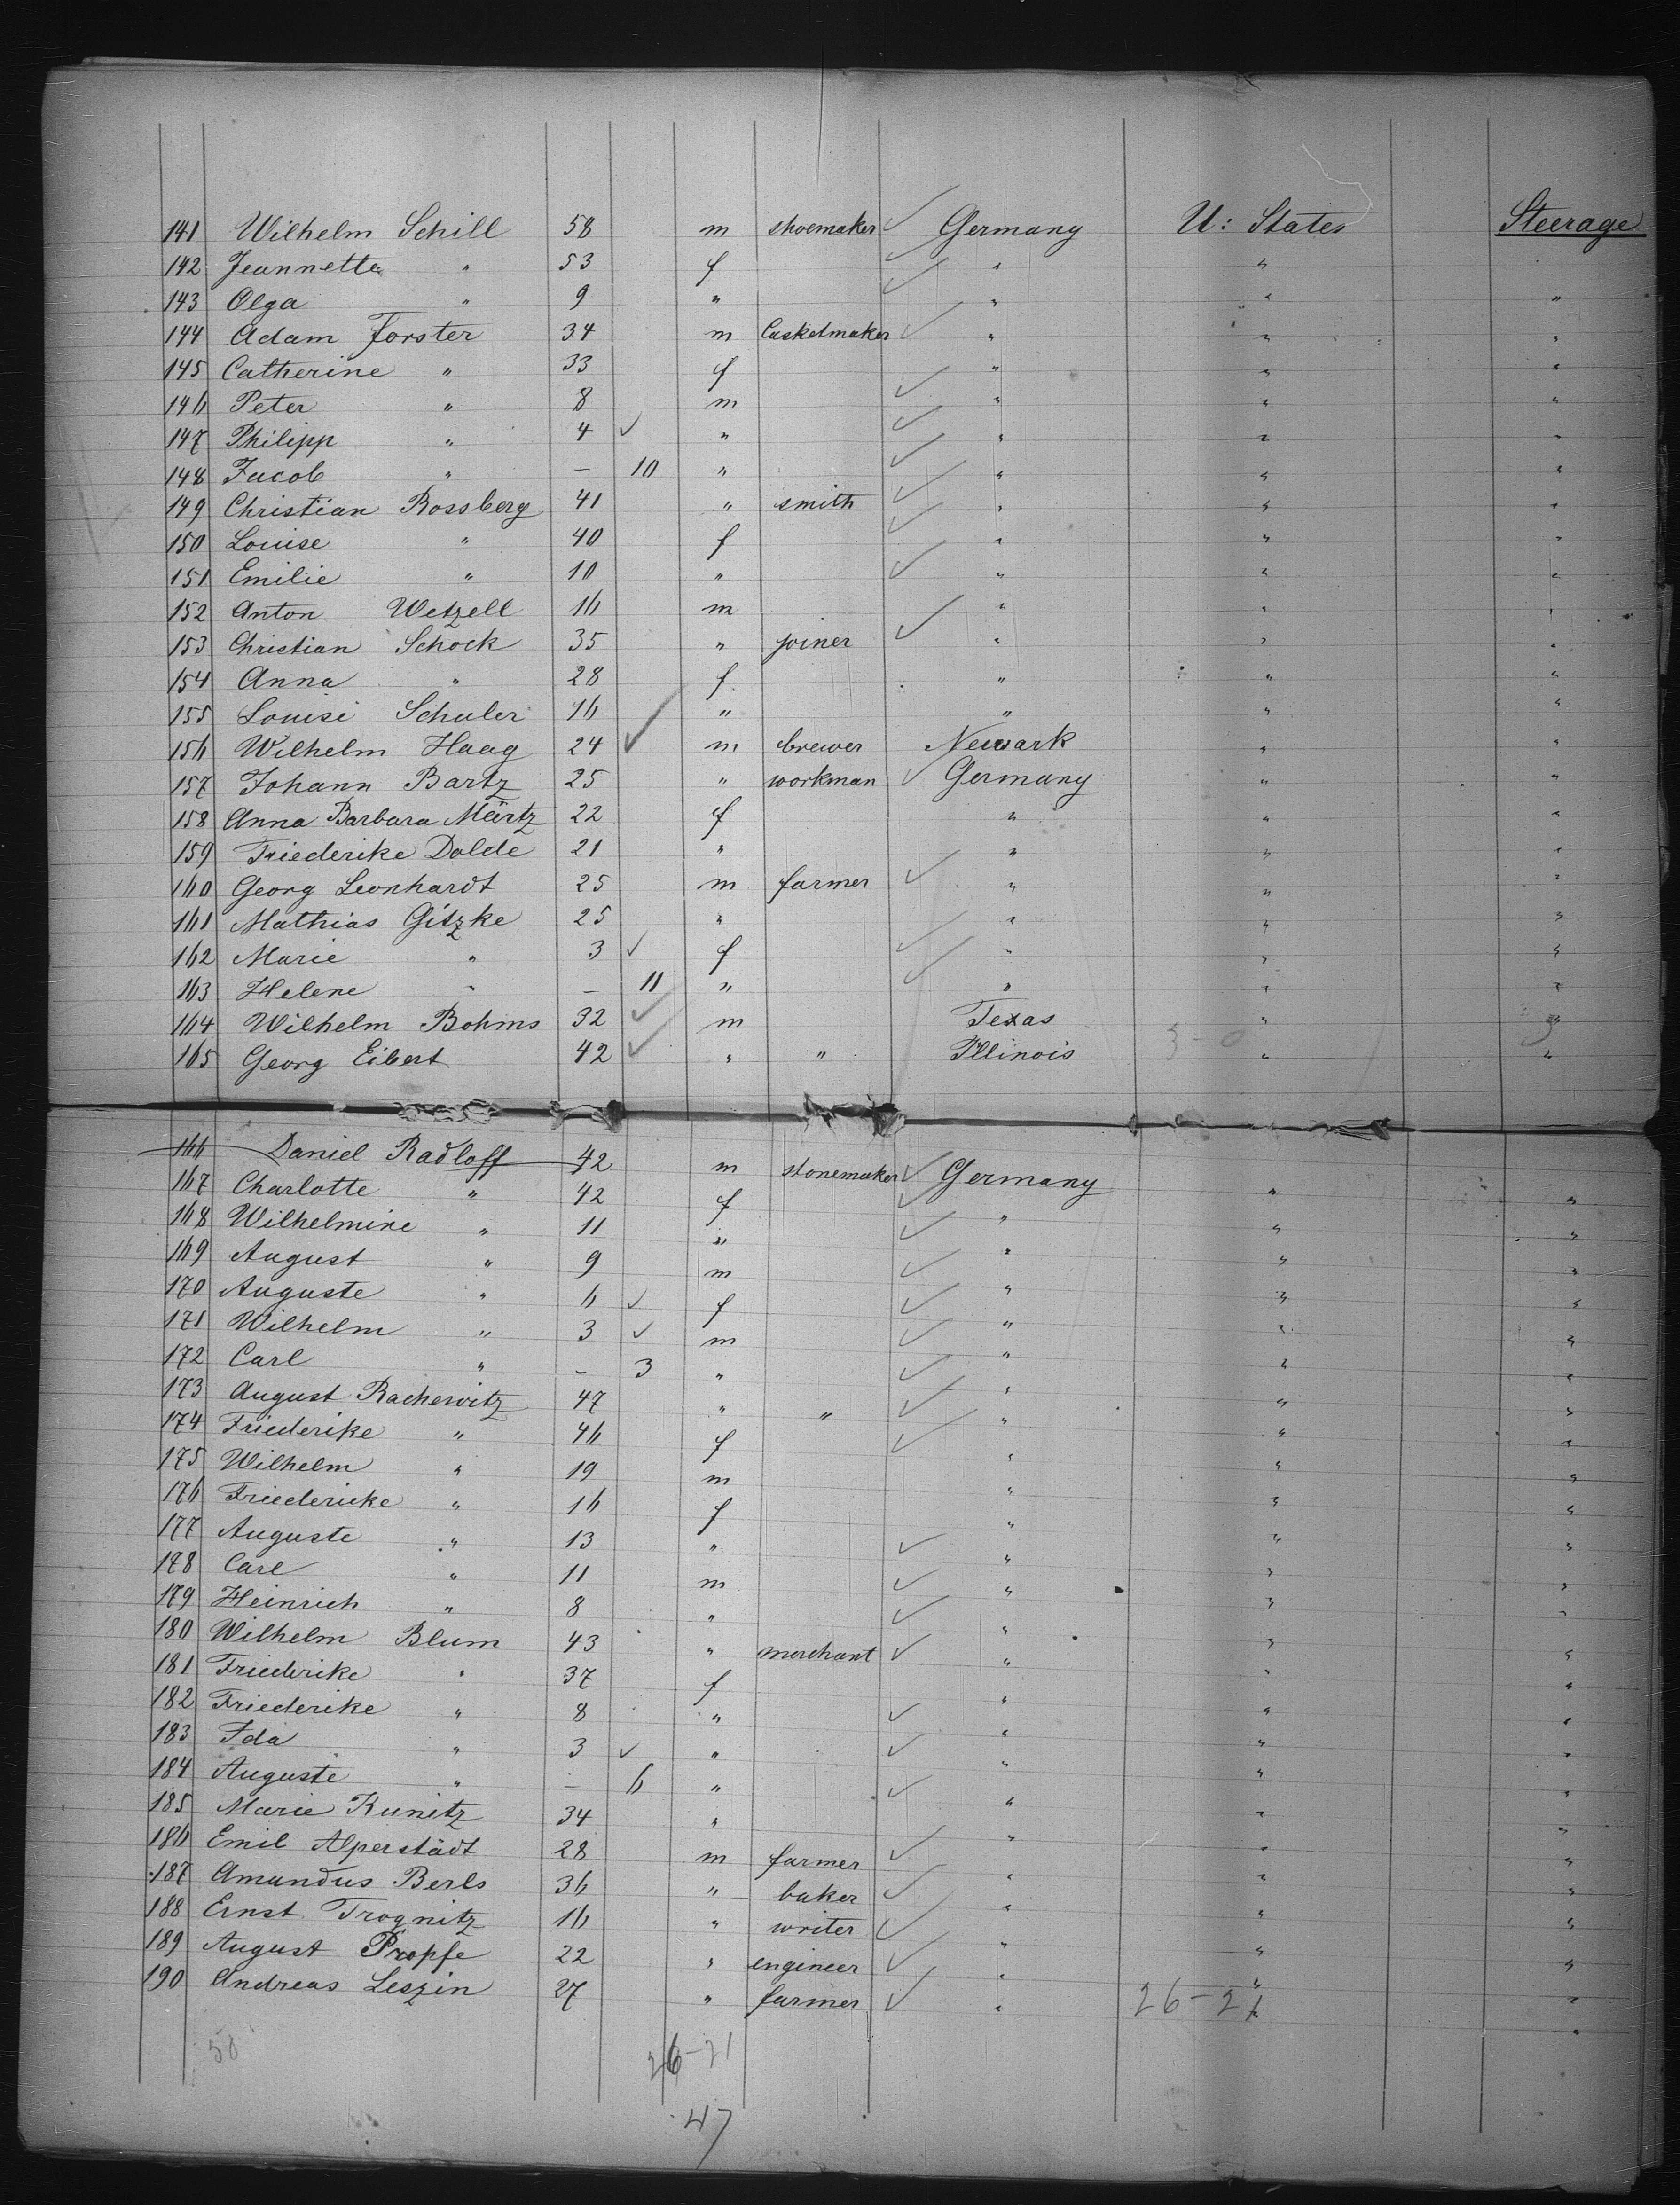 141 Wilhelm Schill 58 m shoemaker ✓ Germany U: States Steerage
142 Jeannette " 53 f ✓ " "
143 Olga " 9 " ✓ " " "
144 Adam Forster 34 m Casketmaker ✓ " " "
145 Catherine " 33 f " " "
146 Peter " 8 m ✓ " " "
147 Philipp " 4 ✓ " ✓ " " "
148 Jacob " — 10 " ✓ " " "
149 Christian Rossberg 41 " smith ✓ " " "
150 Louise " 40 f ✓ " " "
151 Emilie " 10 " ✓ " " "
152 Anton Wetzell 16 m " " "
153 Christian Schock 35 " joiner ✓ " " "
154 Anna " 28 f " " "
155 Louise Schuler 16 " " " "
156 Wilhelm Haag 24 ✓ m brewer Newark " "
157 Johann Bartz 25 " workman ✓ Germany " "
158 Anna Barbara Märtz 22 f " " "
159 Friederike Dolde 21 " " " "
160 Georg Leonhardt 25 m farmer ✓ " " "
161 Mathias Gitzke 25 " " " "
162 Marie " 3 ✓ f ✓ " " "
163 Helene " — 11 " ✓ " " "
164 Wilhelm Bohms 32 ✓ m Texas " "
165 Georg Eibert 42 ✓ " " Illinois 3-0 " "
166 Daniel Radloff 42 m stonemaker ✓ Germany " "
167 Charlotte " 42 f ✓ " " "
168 Wilhelmine " 11 " ✓ " " "
169 August " 9 m ✓ " " "
170 Auguste " 6 ✓ f ✓ " " "
171 Wilhelm " 3 ✓ m ✓ " " "
172 Carl " — 3 " ✓ " " "
173 August Rachewitz 47 " " ✓ " " "
174 Friederike " 46 f ✓ " " "
175 Wilhelm " 19 m " " "
176 Friedericke " 16 f " " "
177 Auguste " 13 " ✓ " " "
178 Carl " 11 m ✓ " " "
179 Heinrich " 8 " ✓ " " "
180 Wilhelm Blum 43 " merchant ✓ " " "
181 Friederike " 37 f " " "
182 Friederike " 8 " ✓ " " "
183 Ida " 3 ✓ " ✓ " " "
184 Auguste " — 6 " ✓ " " "
185 Marie Kunitz 34 " " " "
186 Emil Alperstädt 28 m farmer ✓ " " "
187 Amandus Berls 36 " baker ✓ " " "
188 Ernst Trognitz 16 " writer ✓ " " "
189 August Propfe 22 " engineer ✓ " " "
190 Andreas Leszin 27 " farmer ✓ " 26-21 "
50 26-21
47